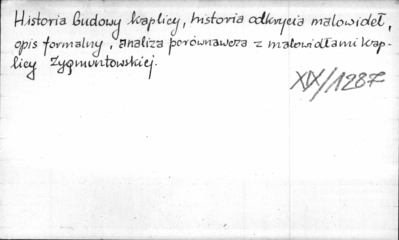 Historia budowy kaplicy, historia odkrycia malowideł,
opis formalny, analiza porównawcza z malowidłami kap-
licy Zygmuntowskiej.
XIX/1287